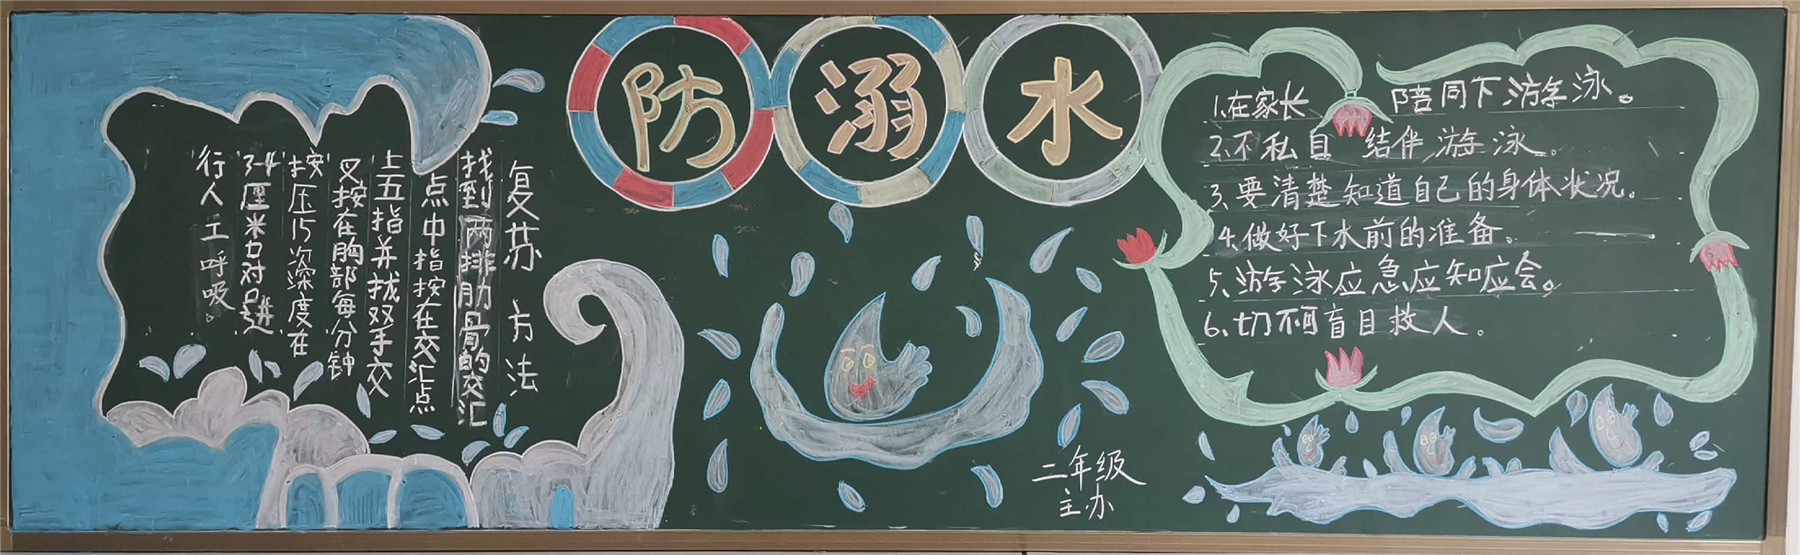 防溺水
复苏方法
找到两排肋骨的交汇
点中指按在交汇点
上五指并拢双手交
叉按在胸部每分钟
按压15次深度在
3-4厘米口对口进
行人工呼吸。
1.在家长陪同下游泳。
2.不私自结伴游泳。
3.要清楚知道自己的身体状况。
4.做好下水前的准备。
5.游泳应急应知应会。
6.切不可盲目救人。
二年级
主办